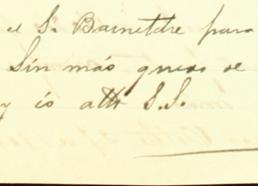 el S. Barnetche para
Sin más queda de
y es atto S.S.